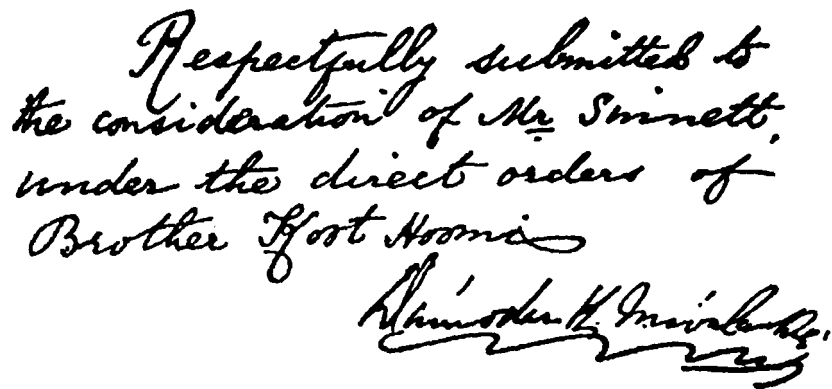 Respectfully submitted to
the consideration of Mr. Sinnett,
under the direct orders of
Brother Koot Hoomi
Dámodar K. Mávalankar.